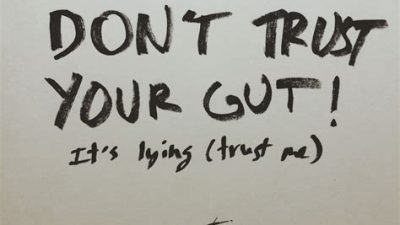 DON'T TRUST
YOUR GUT!
It's lying (trust me)